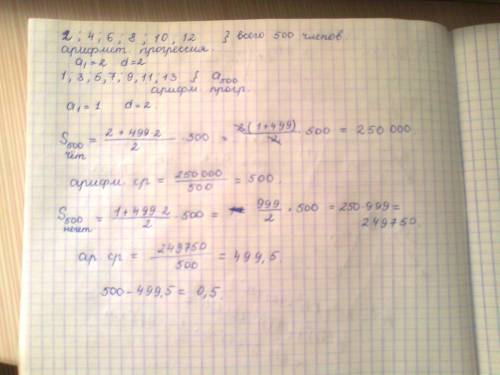 2 ; 4 ; 6 ; 8 ; 10 , 12 } всего 500 членов.
арифмет. прогрессия.
a₁=2 d=2
1 ; 3 ; 5 ; 7 ; 9 , 11 ; 13 } a₅₀₀
арифм прогр.
a₁ = 1 d = 2.
S₅₀₀ чет = (2 + 499·2)/2 · 500 = 2(1+499)/2 · 500 = 250 000.
арифм. ср = 250 000/500 = 500.
S₅₀₀ нечет = (1+499·2)/2 · 500 = 999/2 · 500 = 250·999 =
249 750.
ар. ср = 249750/500 = 499,5.
500 - 499,5 = 0,5.